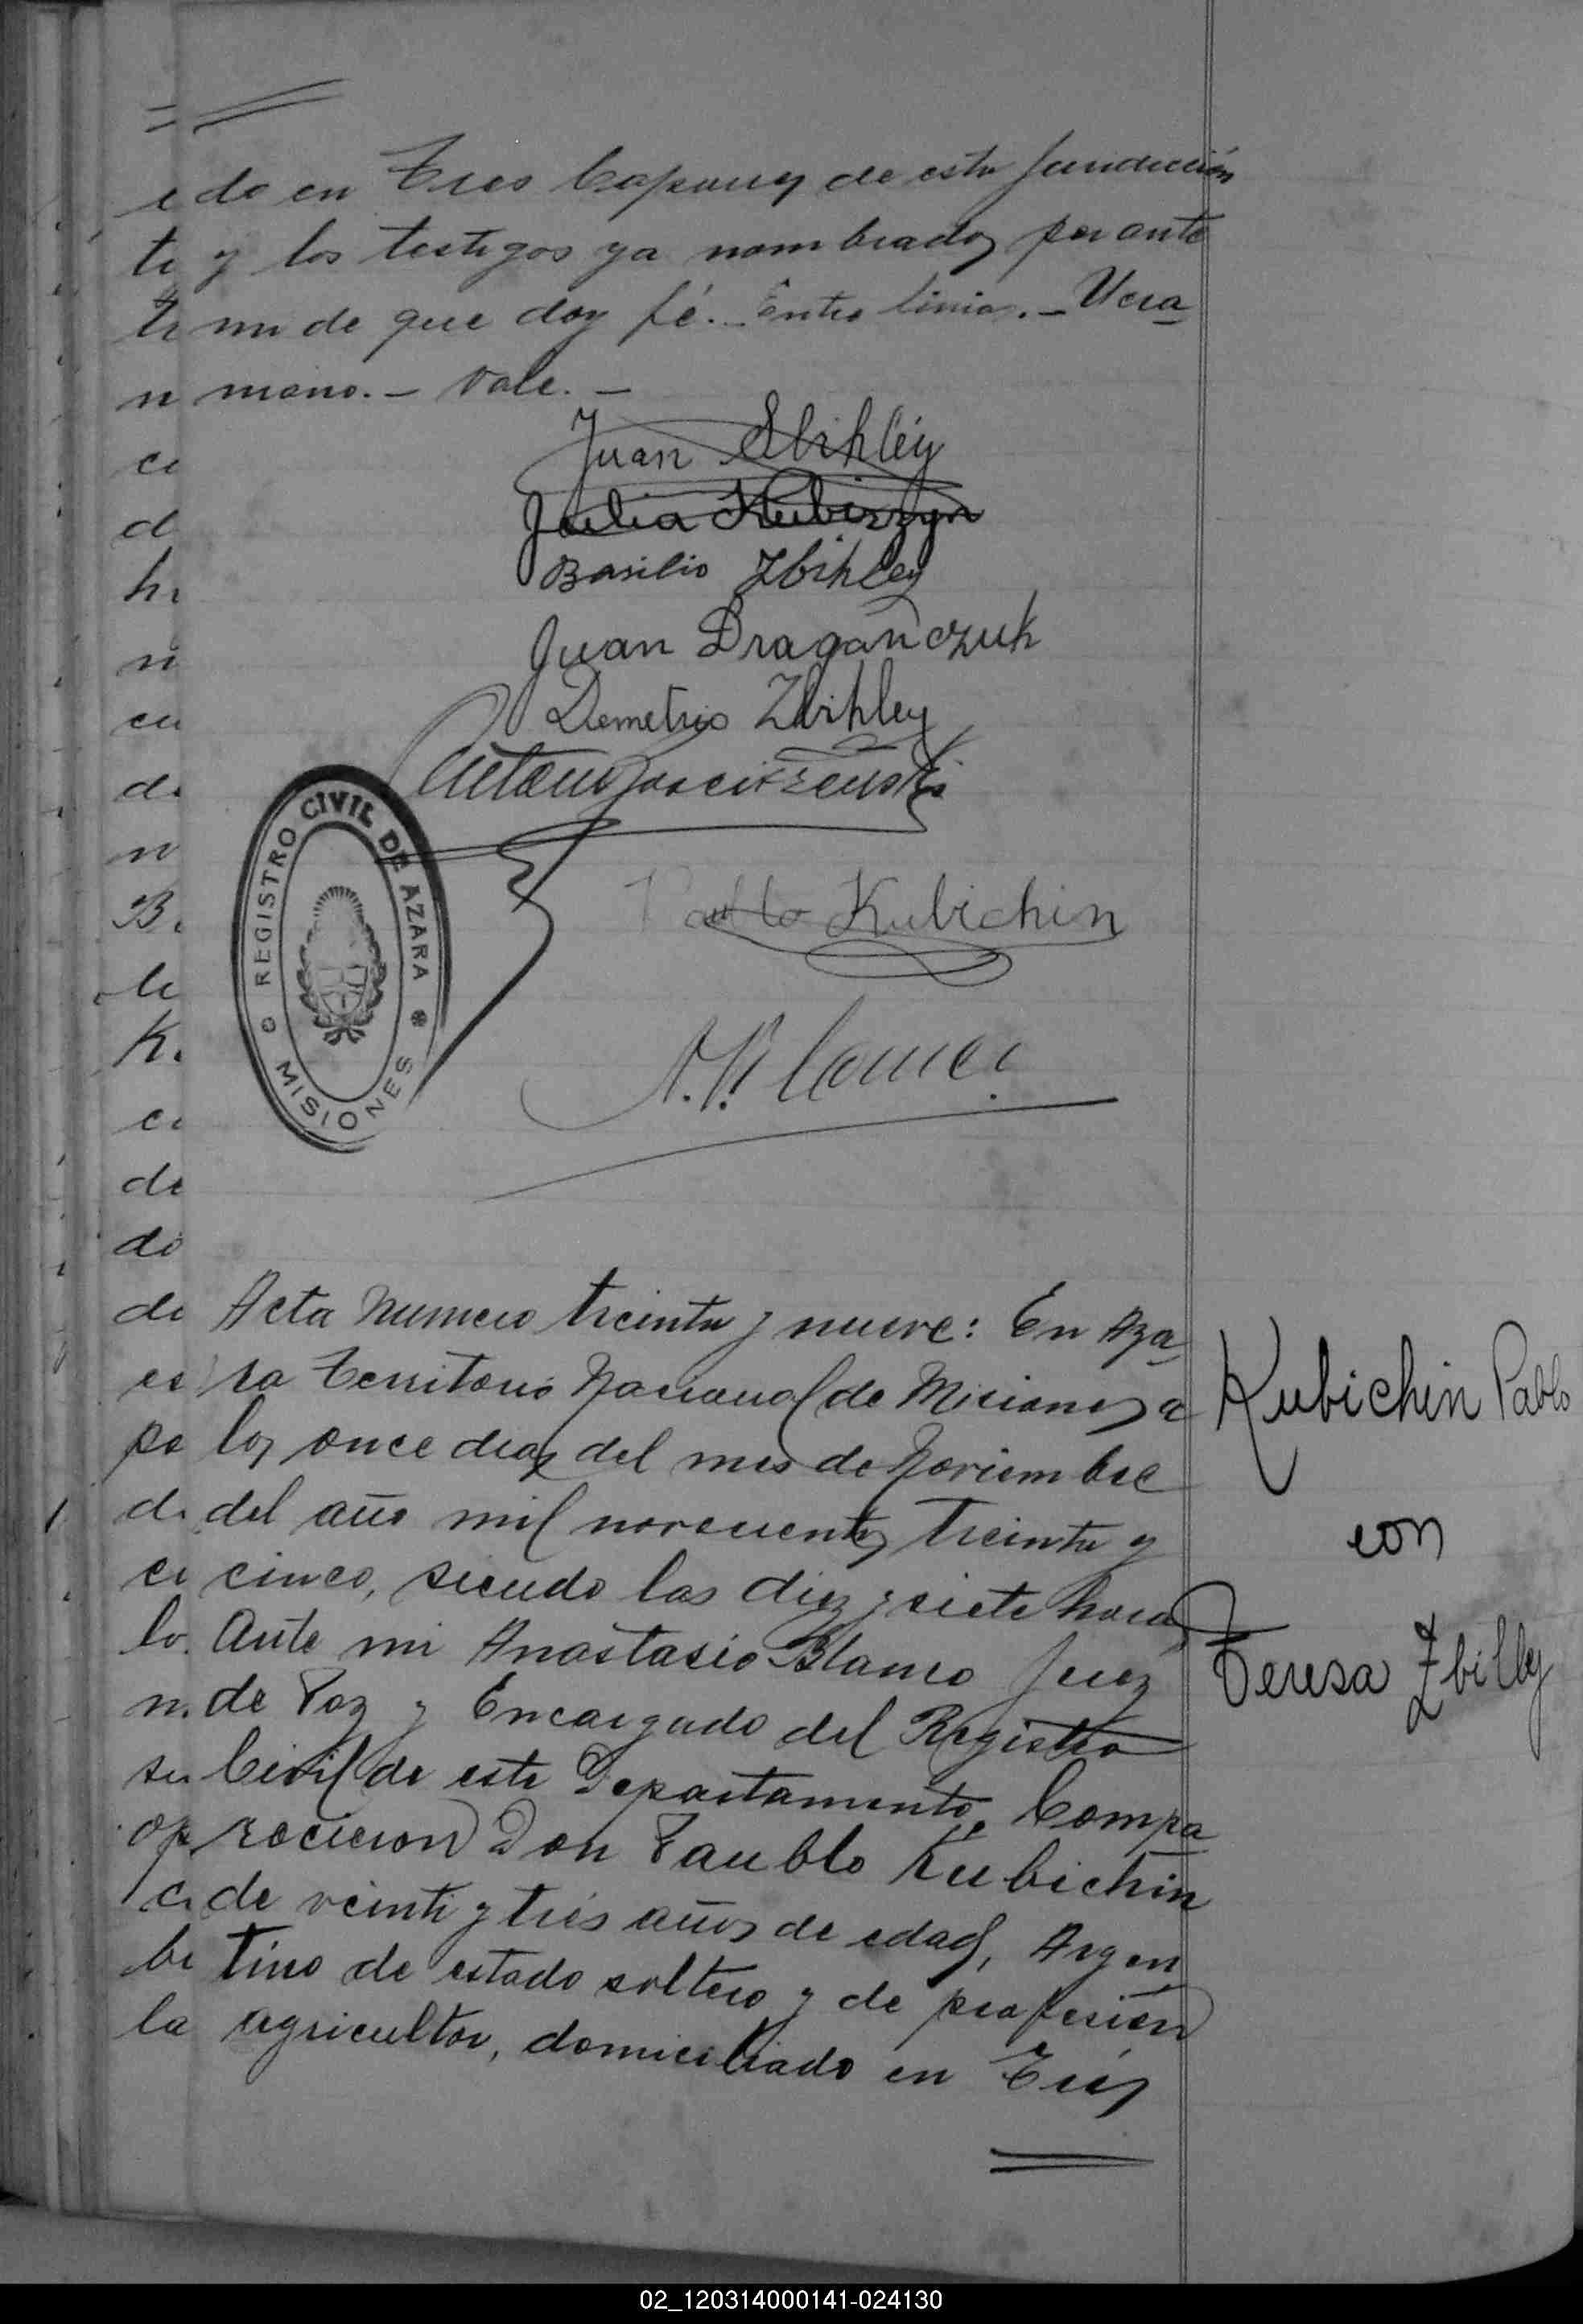 do en Tres Capones de esta Jurisdicción
y los testigos ya nombrados por ante
mi de que doy fé.- Entre linia.- Vera
mano.- Vale.-
Juan Zbihléy
Julia Kubiszyn
Basilio Zbihley
Juan Dragañczuk
Demetrio Zbihley
Pablo Kubichin
A. Blanco
REGISTRO CIVIL DE AZARA
MISIONES
Acta Numero treinta y nueve: En Aza
ra Territorio Nacional de Misiones a
los once dias del mes de Noviembre
del año mil novecientos treinta y
cinco, siendo las diez y siete horas
Ante mi Anastasio Blanco Juez
de Paz y Encargado del Registro
Civil de este Departamento, Compa
recieron Don Paublo Kubichin
de veinti y trés años de edad, Argen
tino de estado soltero y de profesión
agricultor, domiciliado en Trés
Kubichin Pablo
con
Teresa Zbilley
02_120314000141-024130